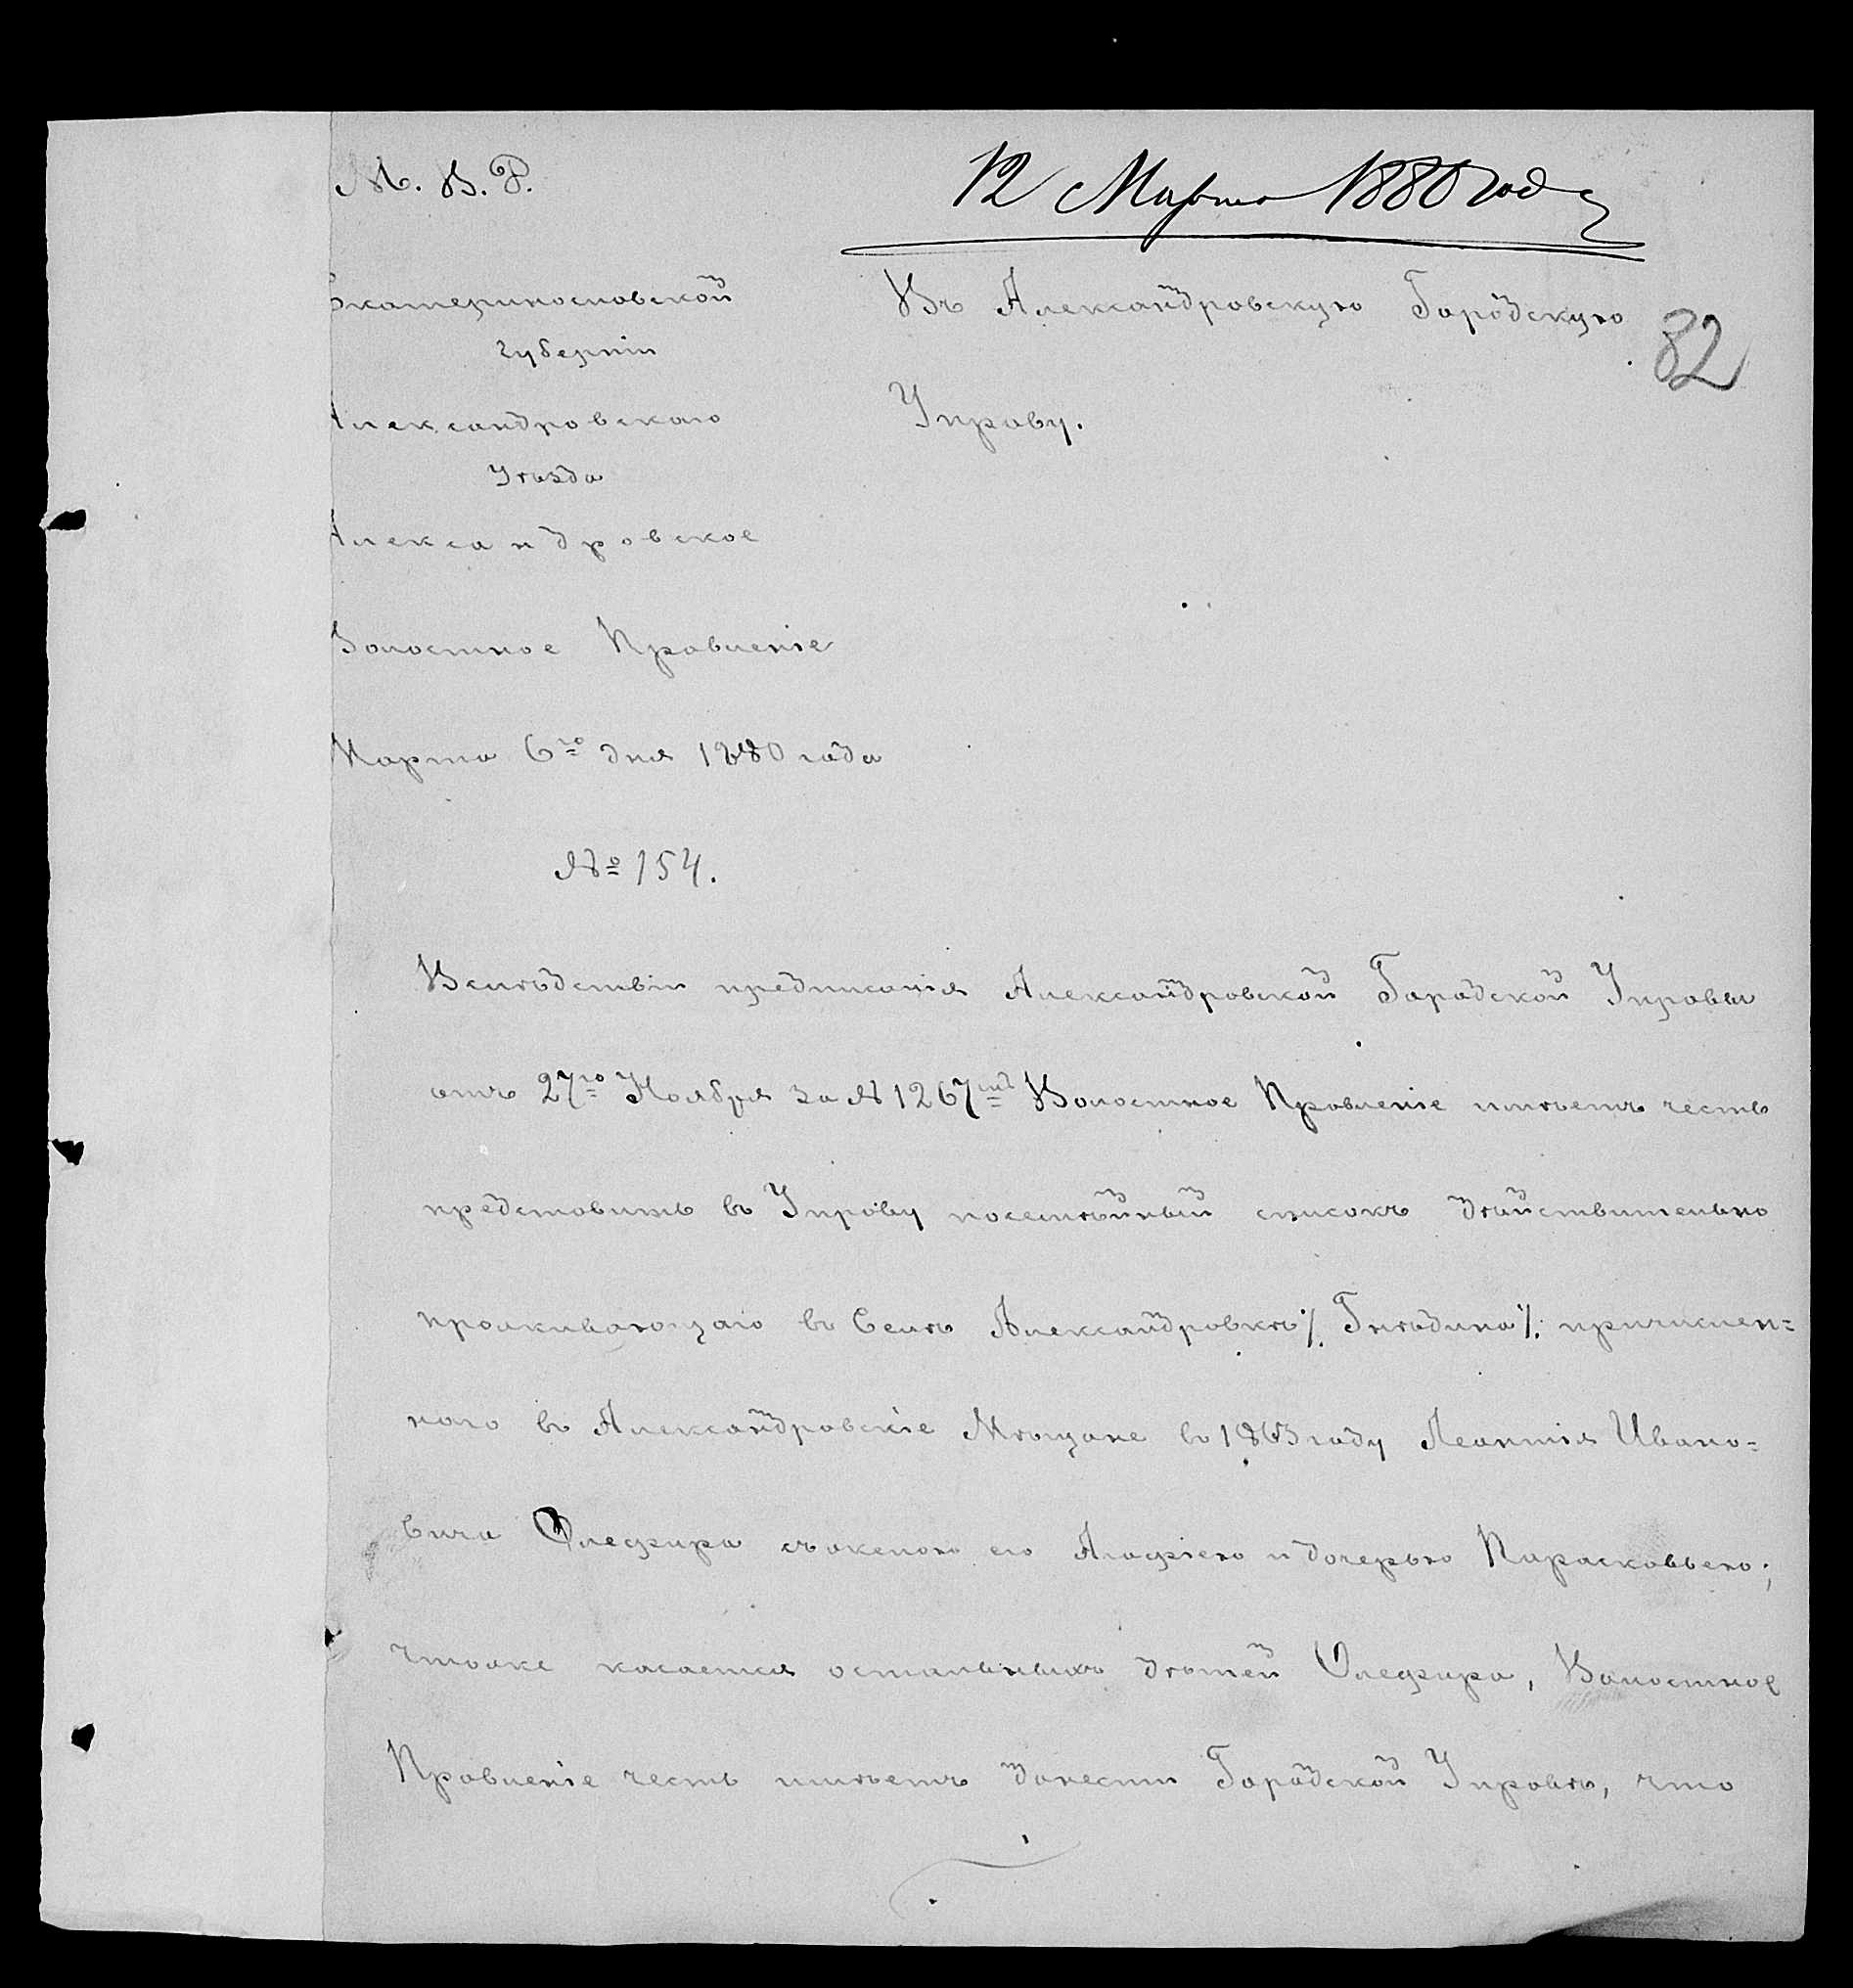 М. В. Д.
12 Марта 1880 года
Екатеринославской
Губерніи
Александровскаго
Уѣзда
Александровское
Волостное Правленіе
Марта 6го дня 1880 года
№ 154.
Въ Александровскую Городскую
82
Управу.
Вслѣдствіи предписанія Александровской Городской Управы
отъ 27го Ноября за № 1267мъ Волостное Правленіе имѣетъ честь
представить въ Управу посемѣйный списокъ дѣйствительно
проживающаго въ Селѣ Александровкѣ /. Гнѣдина /. причислен=
наго въ Александровскіе Мѣщане въ 1863 году Леонтія Ивано=
вича Олефира съ женою его Агафіею и дочерью Парасковьею;
чтоже касается остальныхъ дѣтей Олефира, Волостное
Правленіе честь имѣетъ донести Городской Управѣ, что